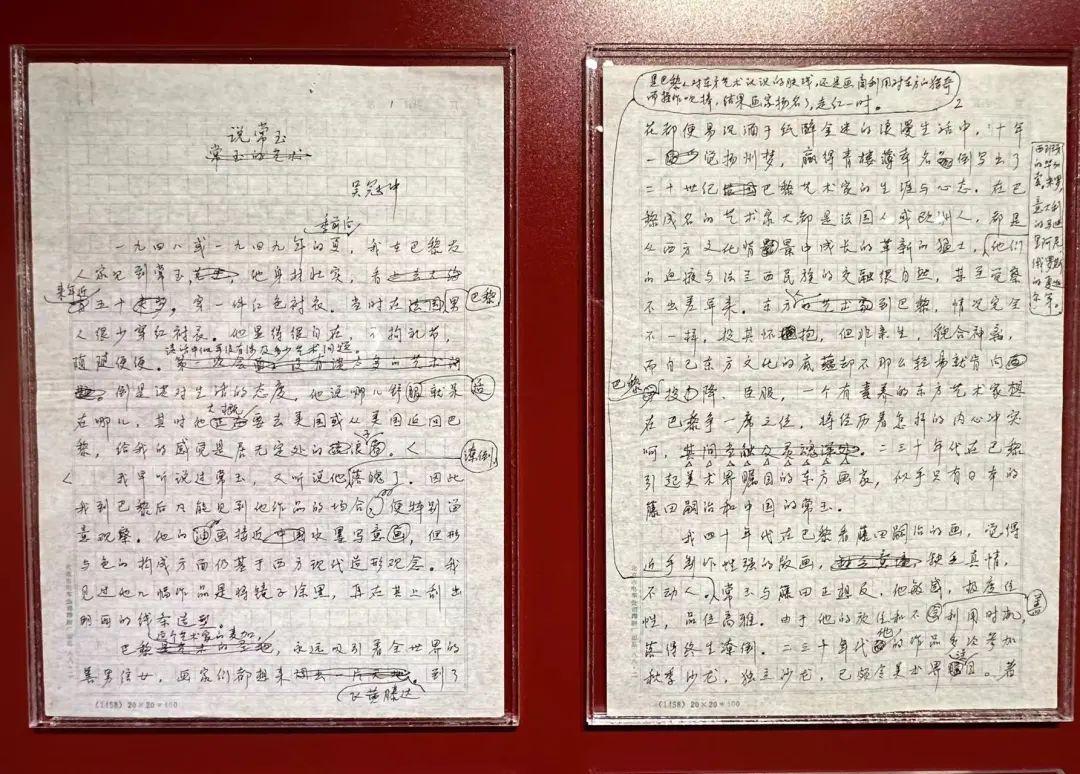 1
说常玉
常玉的艺术
吴冠中
一九四八或一九四九年的夏,我在巴黎友
人家见到常玉,他身材壮实,看
来年近五十,穿一件红色衬衣。当时在法国男 巴黎
人很少穿红衬衣。他显得很自在,不拘礼节,
谈话中似乎没有涉及多少艺术问题,
随随便便。
倒是谈对生活的态度,他说哪儿舒服就呆
在哪儿,其时他大概要去美国或从美国返回巴
黎,给我的感觉是居无定处的 潦倒
我早听说过常玉,又听说他落魄了。因此
我到巴黎后凡能见到他作品的场合,便特别注
意观察。他的油画接近中国水墨写意画,但形
与色的构成方面仍基于西方现代造形观念。我
见过他几幅作品是将镜子涂黑,再在其上刮出
明面的线条造形。
巴黎 永远吸引着全世界的
善男信女,画家们都想来 到了
(1458) 20×20=400
2
是巴黎人对东方艺术认识的肤浅,还是画商利用对东方的猎奇
而操作吹捧,结果画家扬名了,走红一时。
花都便易沉湎于纸醉金迷的浪漫生活中,十年
一觉扬州梦,赢得青楼薄幸名倒写出了
二十世纪巴黎艺术家的生涯与心态。在巴
黎成名的艺术家大都是法国人或欧洲人,都是
从西方文化背景中成长的革新的猛士,他们
的血脉与法兰西民族的交融很自然,甚至觉察
不出差异来。东方的艺术家到巴黎,情况完全
不一样,投其怀抱,但非亲生,貌合神离,
而自己东方文化的底蕴却不那么轻易就肯向西
巴黎 投降、臣服,一个有素养的东方艺术家想
在巴黎争一席之位,将经历着怎样的内心冲突
呵,其间当触及灵魂深处。二三十年代在巴黎
引起美术界瞩目的东方画家,似乎只有日本的
藤田嗣治和中国的常玉。
我四十年代在巴黎看藤田嗣治的画,觉得
近乎制作性强的版画, 缺乏真情,
不动人。常玉与藤田正相反,他敏感,极度任
性,品位高雅。由于他的放任和不善利用时机,
落得终生潦倒。二三十年代他的作品多次参加
秋季沙龙,独立沙龙,已颇令美术界瞩目。著
(1458) 20×20=400